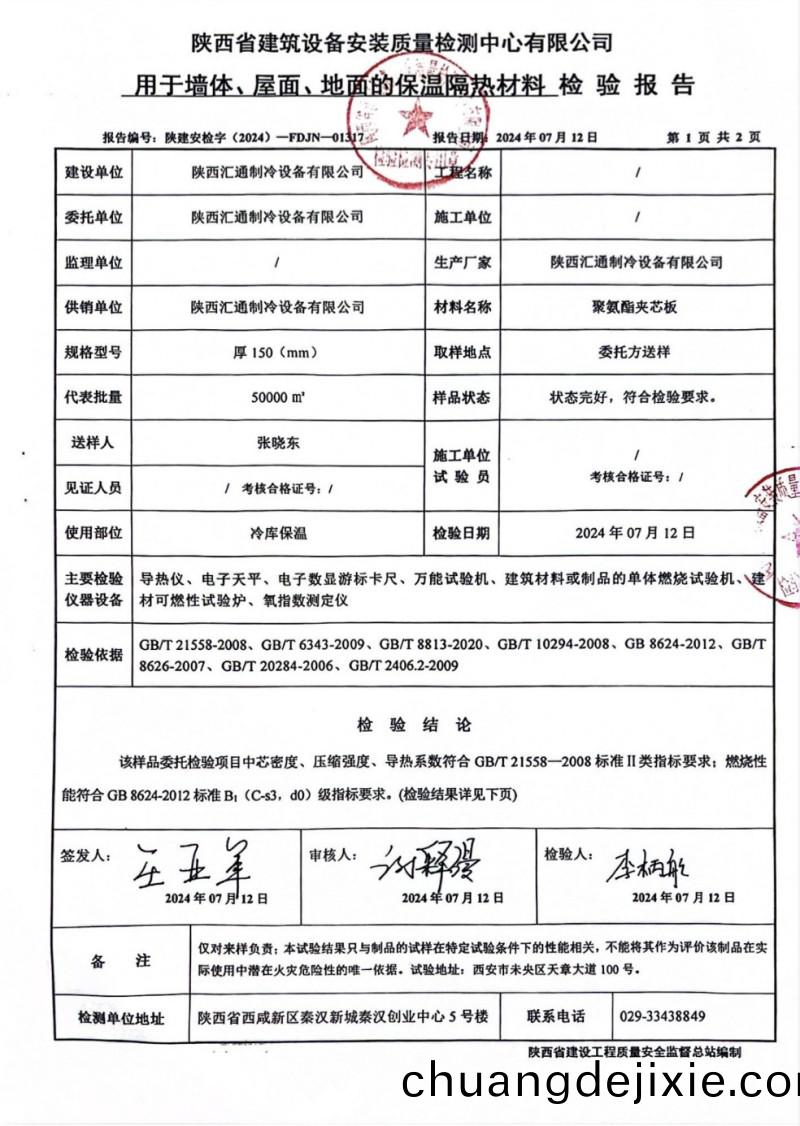 陕西省建筑设备安装质量检测中心有限公司
用于墙体、屋面、地面的保温隔热材料 检 验 报 告
报告编号：陕建安检字（2024）—FDJN—01317 报告日期：2024年07月12日 第 1 页 共 2 页
建设单位 陕西汇通制冷设备有限公司 工程名称 /
委托单位 陕西汇通制冷设备有限公司 施工单位 /
监理单位 / 生产厂家 陕西汇通制冷设备有限公司
供销单位 陕西汇通制冷设备有限公司 材料名称 聚氨酯夹芯板
规格型号 厚 150（mm） 取样地点 委托方送样
代表批量 50000 ㎡ 样品状态 状态完好，符合检验要求。
送样人 张晓东
施工单位 /
试 验 员 考核合格证号：/
见证人员 / 考核合格证号：/
使用部位 冷库保温 检验日期 2024 年 07 月 12 日
主要检验 导热仪、电子天平、电子数显游标卡尺、万能试验机、建筑材料或制品的单体燃烧试验机、建
仪器设备 材可燃性试验炉、氧指数测定仪
检验依据 GB/T 21558-2008、GB/T 6343-2009、GB/T 8813-2020、GB/T 10294-2008、GB 8624-2012、GB/T
8626-2007、GB/T 20284-2006、GB/T 2406.2-2009
检 验 结 论
该样品委托检验项目中芯密度、压缩强度、导热系数符合 GB/T 21558—2008 标准Ⅱ类指标要求；燃烧性
能符合 GB 8624-2012 标准 B₁（C-s3，d0）级指标要求。(检验结果详见下页)
签发人： 审核人： 检验人：李柄欣
2024 年 07 月 12 日 2024 年 07 月 12 日 2024 年 07 月 12 日
备 注 仅对来样负责；本试验结果只与制品的试样在特定试验条件下的性能相关，不能将其作为评价该制品在实
际使用中潜在火灾危险性的唯一依据。试验地址：西安市未央区天章大道 100 号。
检测单位地址 陕西省西咸新区秦汉新城秦汉创业中心 5 号楼 联系电话 029-33438849
陕西省建设工程质量安全监督总站编制
chuangdejixie.co